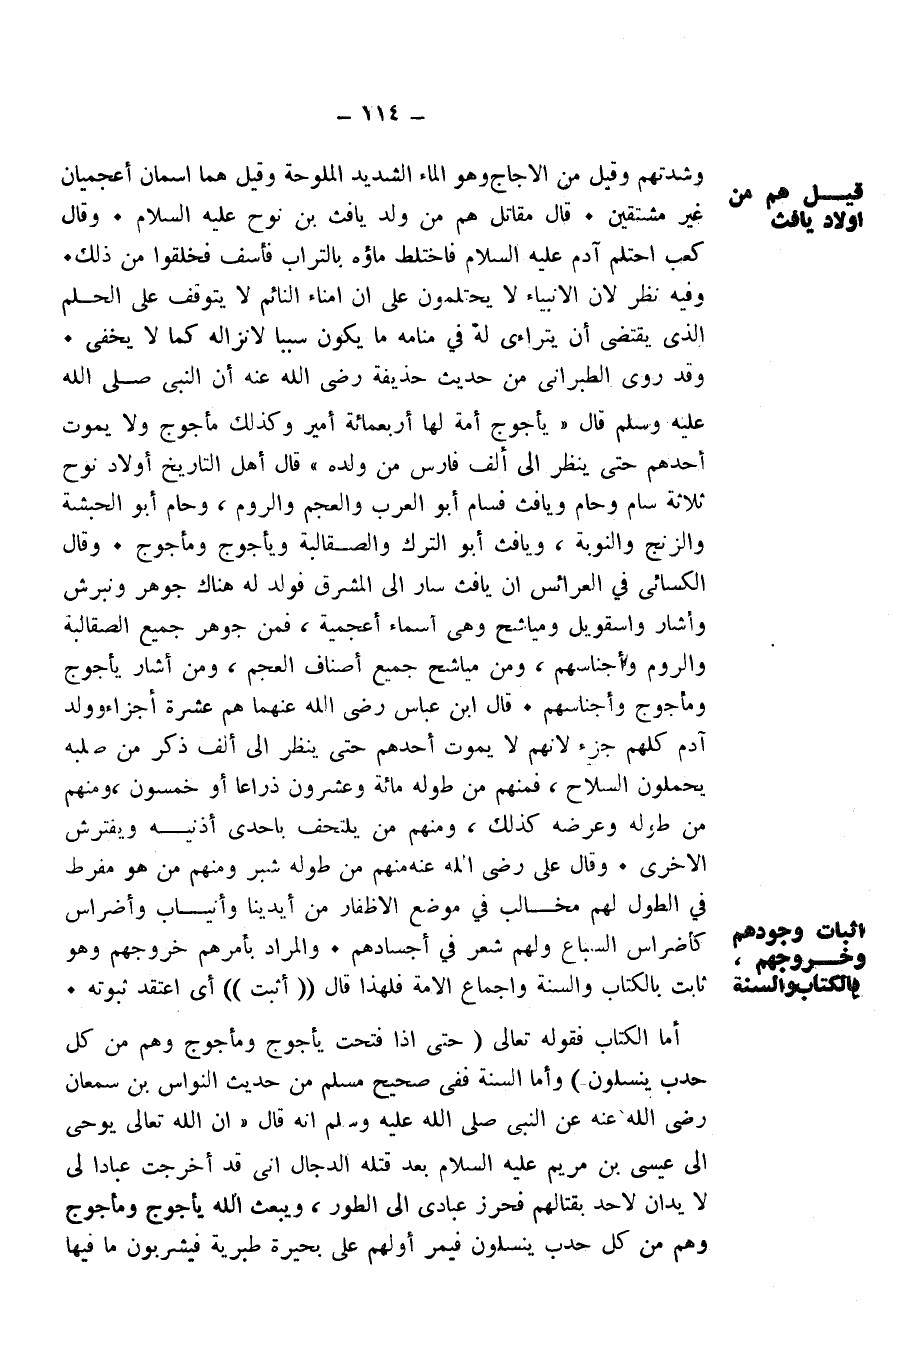 – ١١٤ –
وشدتهم وقيل من الاجاج وهو الماء الشديد الملوحة وقيل هما اسمان أعجميان
قيـــل هم من
غير مشتقين • قال مقاتل هم من ولد يافث بن نوح عليه السلام • وقال
اولاد يافث
كعب احتلم آدم عليه السلام فاختلط ماؤه بالتراب فأسف فخلقوا من ذلك •
وفيه نظر لان الانبياء لا يحتلمون على ان امناء النائم لا يتوقف على الحـلم
الذى يقتضى أن يتراءى له في منامه ما يكون سببا لانزاله كما لا يخفى •
وقد روى الطبرانى من حديث حذيفة رضى الله عنه أن النبى صـلى الله
عليه وسلم قال « يأجوج أمة لها أربعمائة أمير وكذلك مأجوج ولا يموت
أحدهم حتى ينظر الى ألف فارس من ولده » قال أهل التاريخ أولاد نوح
ثلاثة سام وحام ويافث فسام أبو العرب والعجم والروم ، وحام أبو الحبشة
والزنج والنوبة ، ويافث أبو الترك والصـقالبة ويأجوج ومأجوج • وقال
الكسائى في العرائس ان يافث سار الى المشرق فولد له هناك جوهر ونبرش
وأشار واسقويل ومياشح وهى أسماء أعجمية ، فمن جوهر جميع الصقالبة
والروم وأجناسهم ، ومن مياشح جميع أصناف العجم ، ومن أشار يأجوج
ومأجوج وأجناسهم • قال ابن عباس رضى الله عنهما هم عشرة أجزاء وولد
آدم كلهم جزء لانهم لا يموت أحدهم حتى ينظر الى ألف ذكر من صلبه
يحملون السلاح ، فمنهم من طوله مائة وعشرون ذراعا أو خمسون ، ومنهم
من طوله وعرضه كذلك ، ومنهم من يلتحف باحدى أذنيـــه ويفترش
الاخرى • وقال على رضى الله عنه منهم من طوله شبر ومنهم من هو مفرط
في الطول لهم مخـــالب في موضع الاظفار من أيدينا وأنيـــاب وأضراس
اثبات وجودهم
كأضراس السباع ولهم شعر في أجسادهم • والمراد بأمرهم خروجهم وهو
وخـــروجهم ،
ثابت بالكتاب والسنة واجماع الامة فلهذا قال (( أثبت )) أى اعتقد ثبوته •
بالكتاب والسنة
أما الكتاب فقوله تعالى ( حتى اذا فتحت يأجوج ومأجوج وهم من كل
حدب ينسلون ) وأما السنة ففى صحيح مسلم من حديث النواس بن سمعان
رضى الله عنه عن النبى صلى الله عليه وسلم انه قال « ان الله تعالى يوحى
الى عيسى بن مريم عليه السلام بعد قتله الدجال انى قد أخرجت عبادا لى
لا يدان لاحد بقتالهم فحرز عبادى الى الطور ، ويبعث الله يأجوج ومأجوج
وهم من كل حدب ينسلون فيمر أولهم على بحيرة طبرية فيشربون ما فيها